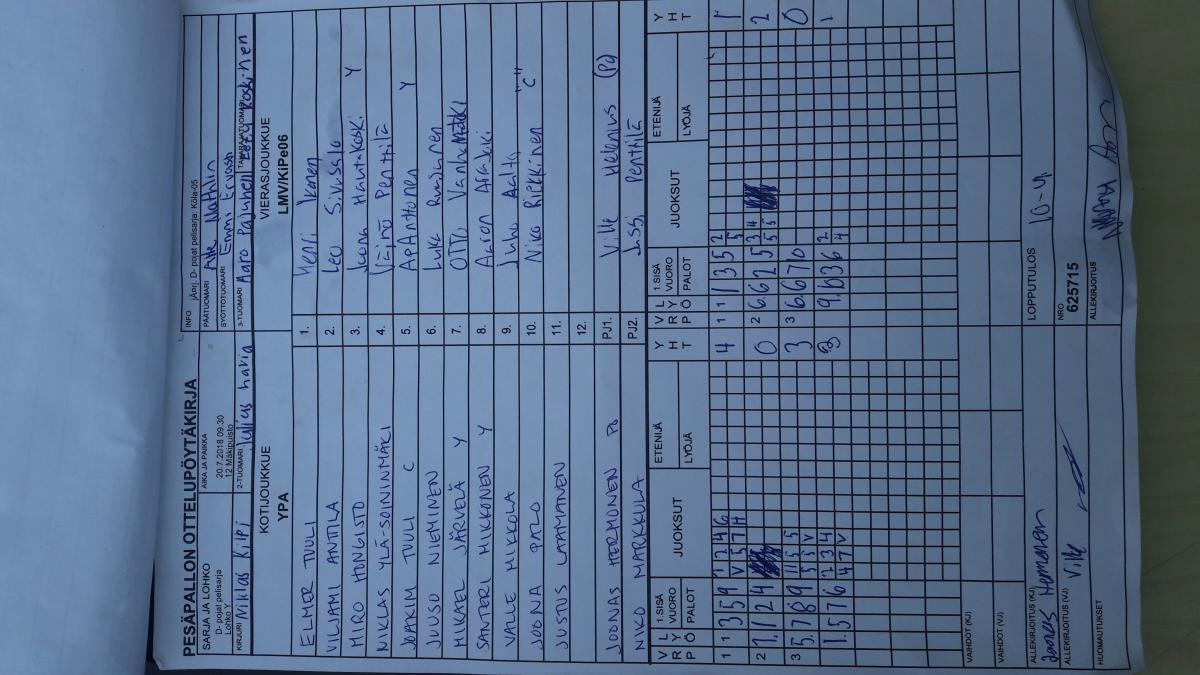 PESÄPALLON OTTELUPÖYTÄKIRJA
SARJA JA LOHKO
D- pojat pelisarja
Lohko Y
AIKA JA PAIKKA
20.7.2018 09:30
12 Mäkipuisto
INFO jÄrj. D- pojat pelisarja: Köla-05
PÄÄTUOMARI
SYÖTTÖTUOMARI Emmi Ervasti
KIRJURI Niklas Kilpi
2-TUOMARI Julius
3-TUOMARI Aaro
TAKARAJATUOMARI Koskinen
KOTIJOUKKUE
YPA
VIERASJOUKKUE
LMV/KIPe06
ELMER TUULI
1.
Henri Ikonen
VILJAMI ANTTILA
2.
Leo
MIRO HONGISTO
3.
Joona Hautakoski Y
NIKLAS YLÄ-SOININMÄKI
4.
Väinö Penttilä
JOAKIM TUULI C
5.
Anttonen Y
JUUSO NIEMINEN
6.
Luka
MIKAEL JÄRVELÄ Y
7.
OTTO
SANTERI MIKKONEN Y
8.
Aaron
VALLE MIKKOLA
9.
Juho Aalto
JOONA PALO
10.
Niko Riikkinen "C"
JUSTUS LATAMAINEN
11.
12.
JOONAS HERMONEN PJ
PJ1.
Ville Helenius (PJ)
NIKO MARKKULA
PJ2.
Jussi Penttilä
V L
R Y
P Ö
1.SISÄ
VUORO
PALOT
JUOKSUT
ETENIJÄ
LYÖJÄ
Y
H
T
V L
R Y
P Ö
1.SISÄ
VUORO
PALOT
JUOKSUT
ETENIJÄ
LYÖJÄ
Y
H
T
1 1 3 5 9 1 2 4 6 4
V 5 7 H
1 1 1 3 5 2 1
5
2 7. 1 2 4 0
2 6. 6 2 5 3 4 2
5 5
3 5. 7 8 9 11 5 5 3
5 5 V
3 6. 6 7 10 0
1. 5 7 6 2 3 4 3
4 7 V
9. 10 3 6 2 1
4
VAIHDOT (KJ)
VAIHDOT (VJ)
ALLEKIRJOITUS (KJ) Joonas Hermonen
LOPPUTULOS 10-4
ALLEKIRJOITUS (VJ) Ville
NRO
625715
HUOMAUTUKSET
ALLEKIRJOITUS